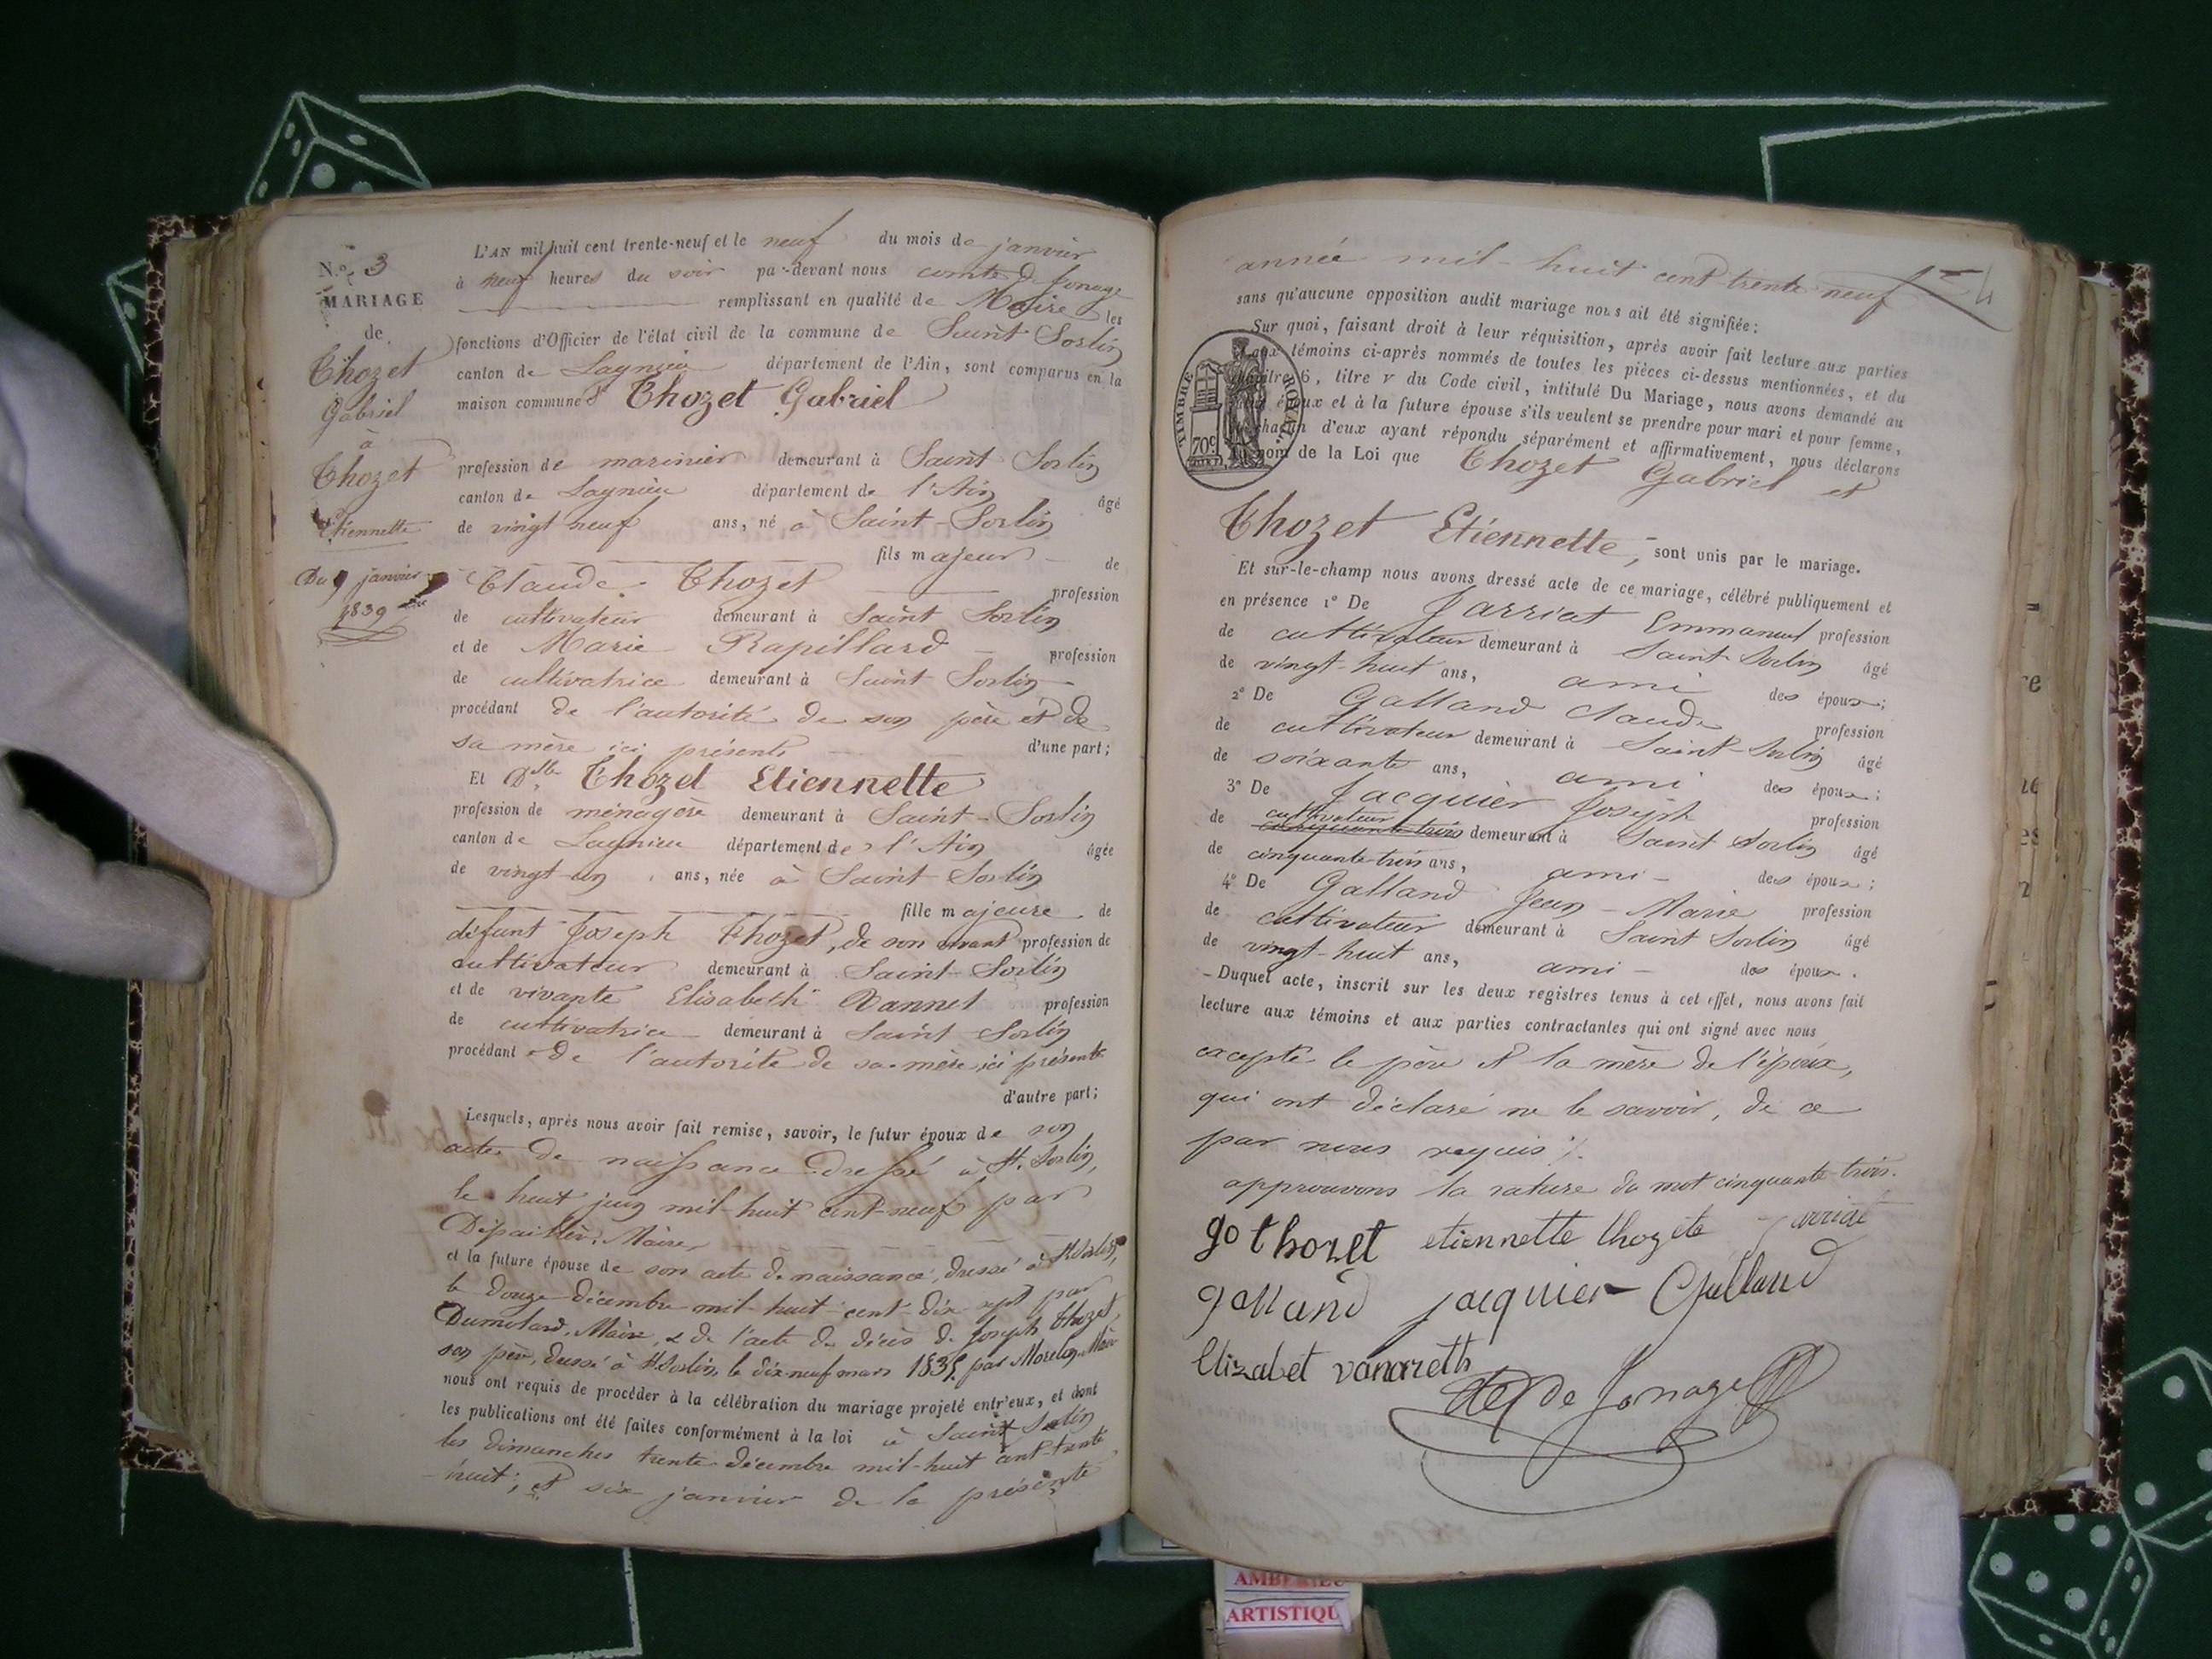 N.º 3
MARIAGE
de
Thozet
Gabriel
à
Thozet
Etiennette
Du 9 janvier
1839
L'AN mil huit cent trente-neuf et le neuf du mois de janvier
à neuf heures du soir par-devant nous comte D. Jonage
remplissant en qualité de Maire les
fonctions d'Officier de l'état civil de la commune de Saint Sorlin
canton de Lagnieu département de l'Ain, sont comparus en la
maison commune Thozet Gabriel
profession de marinier demeurant à Saint Sorlin
canton de Lagnieu département de l'Ain âgé
de vingt neuf ans, né à Saint-Sorlin
fils majeur de
Claude Thozet profession
de cultivateur demeurant à Saint Sorlin
et de Marie Rapillard profession
de cultivatrice demeurant à Saint Sorlin
procédant de l'autorité de son père et de
sa mère ici présents d'une part;
Et Dlle Thozet Etiennette
profession de ménagère demeurant à Saint-Sorlin
canton de Lagnieu département de l'Ain âgée
de vingt-un ans, née à Saint Sorlin
fille majeure de
défunt Joseph Thozet, de son vivant profession de
cultivateur demeurant à Saint-Sorlin
et de vivante Elisabeth Vannet profession
de cultivatrice demeurant à Saint-Sorlin
procédant de l'autorité de sa mère ici présente
d'autre part;
Lesquels, après nous avoir fait remise, savoir, le futur époux de son
acte de naissance dressé à St. Sorlin,
le huit juin mil-huit cent-neuf par
Maire
et la future épouse de son acte de naissance, dressé à St Sorlin,
le douze décembre mil-huit-cent-dix sept par
Dumolard, Maire, & de l'acte de décès de Joseph Thozet,
son père, dressé à St. Sorlin, le dix-neuf mars par Morelon, Maire
nous ont requis de procéder à la célébration du mariage projeté entr'eux, et dont
les publications ont été faites conformément à la loi à Saint Sorlin
les dimanches trente décembre mil-huit cent-trente
-huit; et six janvier de la présente
année mil-huit cent trente neuf
sans qu'aucune opposition audit mariage nous ait été signifiée:
Sur quoi, faisant droit à leur réquisition, après avoir fait lecture aux parties
aux témoins ci-après nommés de toutes les pièces ci-dessus mentionnées, et du
chapitre 6, titre v du Code civil, intitulé Du Mariage, nous avons demandé au
époux et à la future épouse s'ils veulent se prendre pour mari et pour femme,
chacun d'eux ayant répondu séparément et affirmativement, nous déclarons
au nom de la Loi que Thozet Gabriel et
TIMBRE ROYAL
70c
Thozet Etiennette, sont unis par le mariage.
Et sur-le-champ nous avons dressé acte de ce mariage, célébré publiquement et
en présence 1º De Jarriat Emmanuel profession
de cultivateur demeurant à Saint Sorlin âgé
de vingt-huit ans, ami des époux;
2º De Galland Claude profession
de cultivateur demeurant à Saint-Sorlin âgé
de soixante ans, ami des époux;
3º De Jacquier Joseph profession
de cultivateur cinquante-trois demeurant à Saint Sorlin âgé
de cinquante-trois ans, ami des époux;
4º De Galland Jean-Marie profession
de cultivateur demeurant à Saint Sorlin âgé
de vingt-huit ans, ami des époux.
Duquel acte, inscrit sur les deux registres tenus à cet effet, nous avons fait
lecture aux témoins et aux parties contractantes qui ont signé avec nous
excepté le père et la mère de l'époux,
qui ont déclaré ne le savoir, de ce
par nous requis
approuvons la rature du mot cinquante-trois.
go thozet etiennette thozete jarriat
galland jacquier Galland
Elizabet vanareth
de Jonage
AMBERIEU
ARTISTIQU